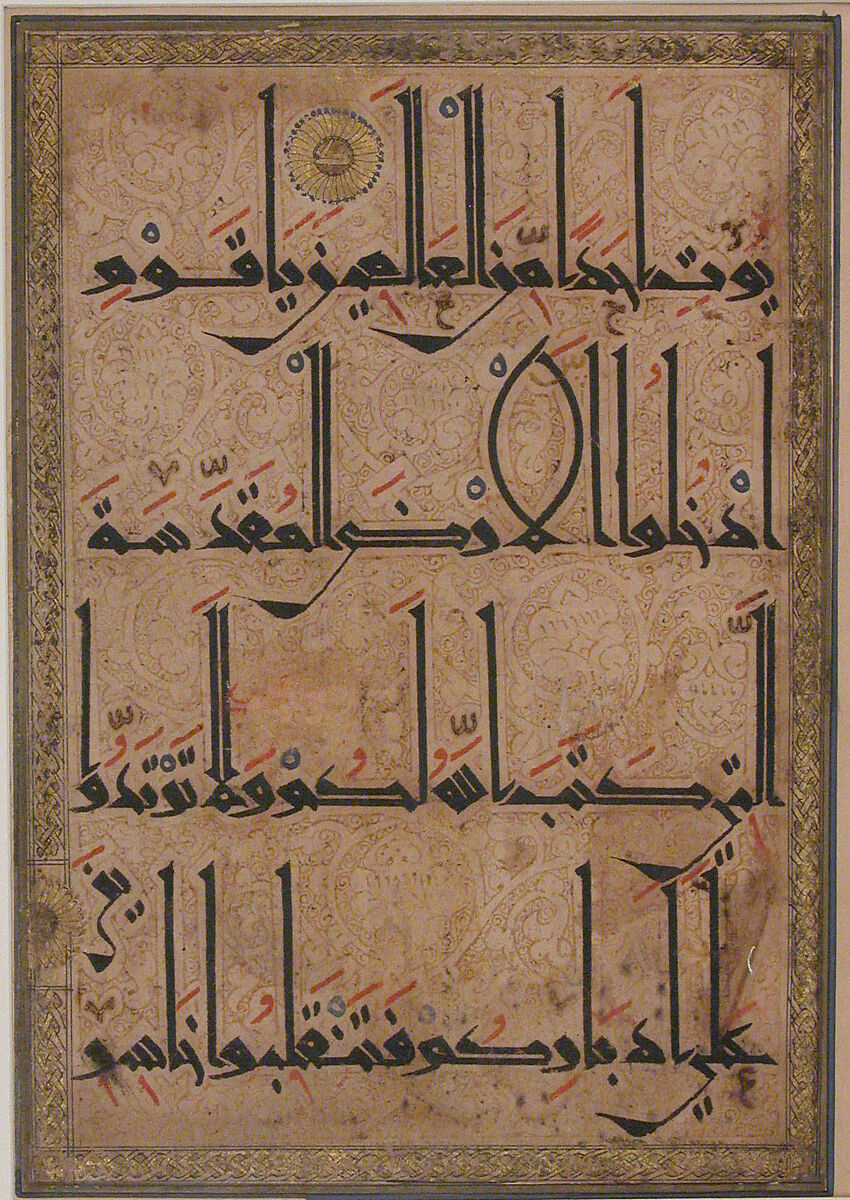 يُؤْتِ أَحَدًا مِّنَ الْعَالَمِينَ يَا قَوْمِ
ادْخُلُوا الْأَرْضَ الْمُقَدَّسَةَ
الَّتِي كَتَبَ اللَّهُ لَكُمْ وَلَا تَرْتَدُّوا
عَلَىٰ أَدْبَارِكُمْ فَتَنقَلِبُوا خَاسِرِينَ